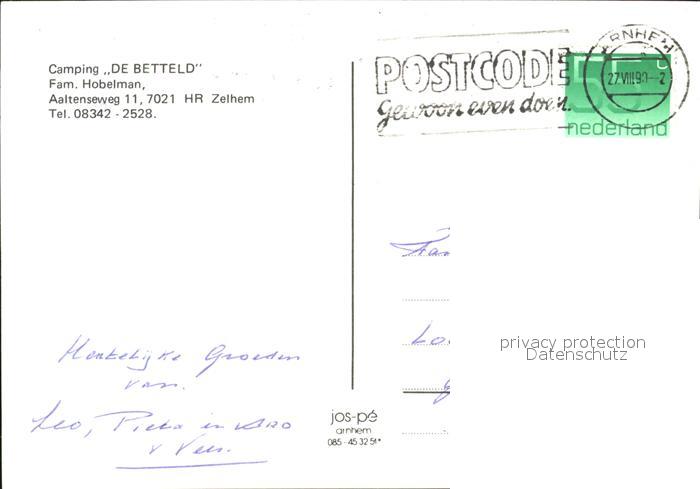 Camping „DE BETTELD"
Fam. Hobelman,
Aaltenseweg 11, 7021 HR Zelhem
Tel. 08342 - 2528.
POSTCODE
Gewoon even doen.
ARNHEM
27.VIII.90-2
nederland
Fam
Lo
privacy protection
Datenschutz
Hartelijke Groeten
van.
Leo, in
jos-pé
arnhem
085-45 32 51*